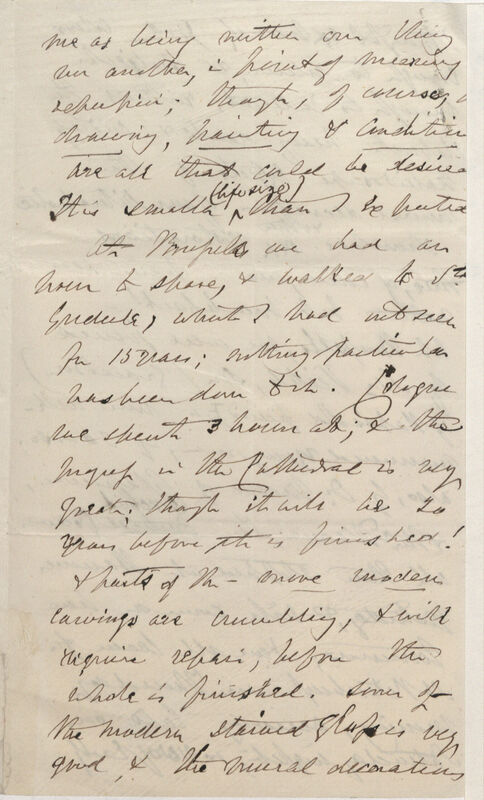 me as being neither one thing
nor another, in point of meaning
; though, of course,
drawing, painting & condition
are all that could be desired
It is smaller (life size) than I expected
At Brussels we had an
hour to spare, & walked to St.
Gudule, which I had not seen
for 15 years; nothing particular
has been done to it. Cologne
we spent 3 hours at; & the
progress in the Cathedral is very
great; though it will be 20
years before it is finished!
& parts of the more modern
carvings are crumbling, & will
require repair, before the
whole is finished. Some of
the modern stained glass is very
good, & the mural decorations